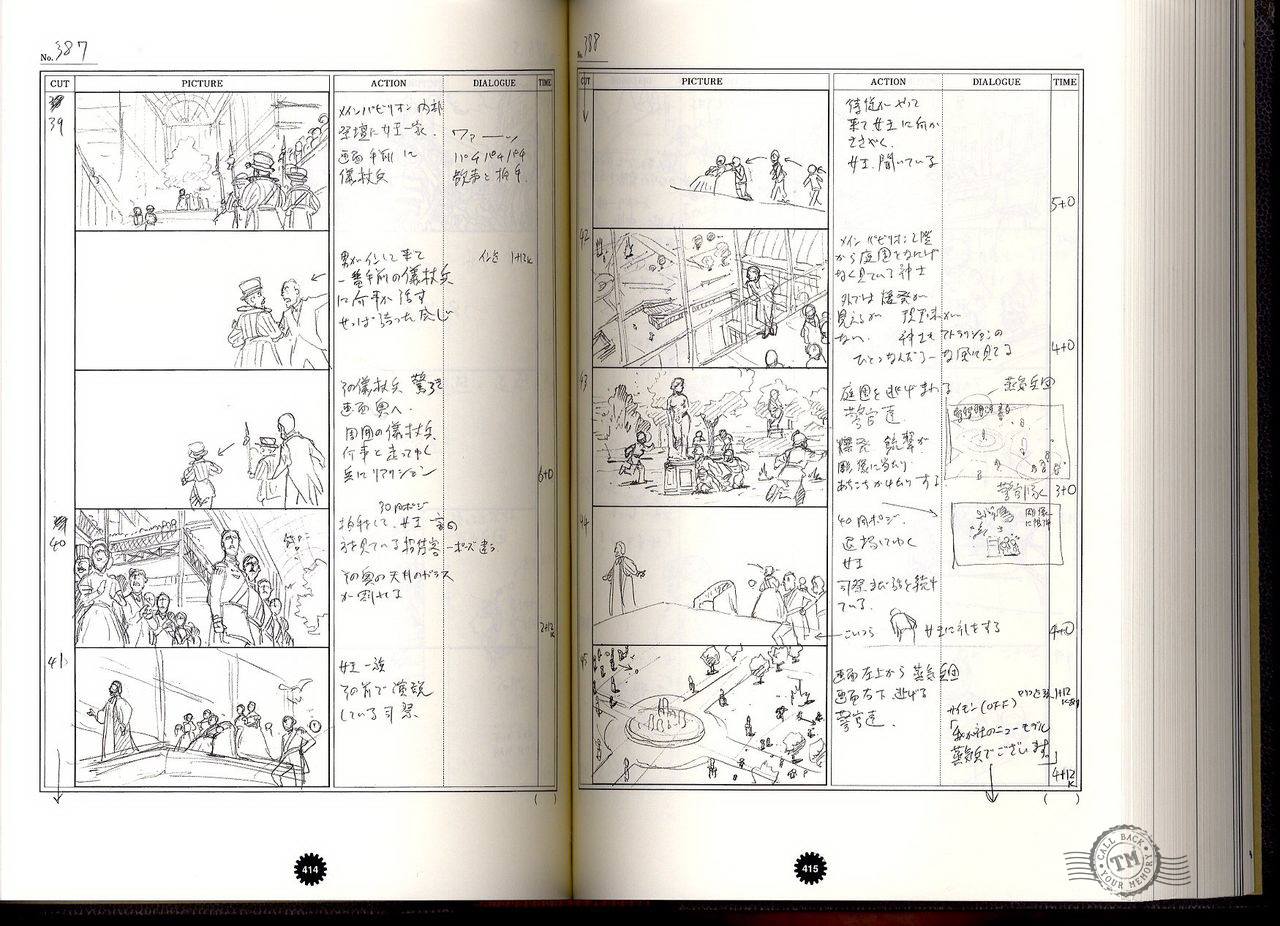 No. 387
CUT PICTURE ACTION DIALOGUE TIME
39
メインパビリオン内部
祭壇に女王一家.
画面手前に
儀仗兵
ワァーーッ
パチパチパチ
歓声と拍手.
男がインして来て
一番手前の儀仗兵
に何事か話す
せっぱ詰った感じ
1+12K
その儀仗兵 驚いて
画面奥へ.
周囲の儀仗兵
何事と走ってゆく
兵にリアクション
6+0
40
拍手して、女王
を見ている招待客 ポーズ違う
その奥の天井のガラス
が割れる
2+12K
41
女王一族
その前で演説
している司祭
( )
414
No. 388
CUT PICTURE ACTION DIALOGUE TIME
侍従がやって
来て女王に何か
ささやく.
女王.聞いている
5+0
42
メインパビリオン2階
から庭園をなにげ
なく見ている紳士
外では爆発が
見えるが 現実味が
ない. 紳士もアトラクションの
ひとつなんだろーな風に見てる
4+0
43
庭園を逃げまわる
警官達
爆発 銃撃が
彫像に当たり
あちこちかけたりする
蒸気兵団
警官隊
3+0
44
退場してゆく
女王
司祭まだ話を続け
ている.
こいつら
女王に礼をする
4+0
45
画面左上から 蒸気兵団
画面右下 逃げる
警官達.
サイモン(OFF)
「我が社のニューモデル
蒸気兵でございます。」
4+12K
( )
415
CALL BACK
TM
YOUR MEMORY